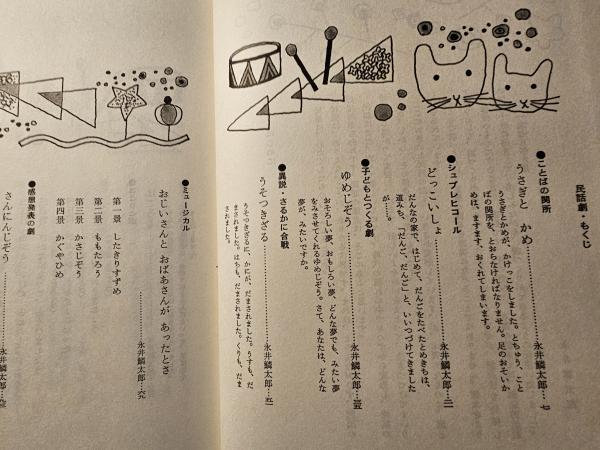 民話劇・もくじ
●ことばの関所
うさぎと　かめ………………永井鱗太郎…七
うさぎとかめが、かけっこをしました。とちゅう、こと
ばの関所を、とおらなければなりません。足のおそいか
めは、ますます、おくれてしまいます。
●シュプレヒコール
どっこいしょ………………永井鱗太郎…三
だんなの家で、はじめて、だんごをたべたとめきちは、
道みち、「だんご、だんご」と、いいつづけてきました
が……。
●子どもとつくる劇
ゆめじぞう………………永井鱗太郎…
おそろしい夢、おもしろい夢、どんな夢でも、みたい夢
をみさせてくれるゆめじぞう。さて、あなたは、どんな
夢が、みたいですか。
●異説・さるかに合戦
うそつきざる………………永井鱗太郎…
うそつきざるに、かにが、だまされました。うすも、だ
まされました。はちも、だまされました。くりも、だま
されました。
●ミュージカル
おじいさんと　おばあさんが　あったとさ
………………永井鱗太郎…六
第一景　したきりすずめ
第二景　ももたろう
第三景　かさじぞう
第四景　かぐやひめ
●感想発表の劇
さんにんじぞう………………永井鱗太郎…